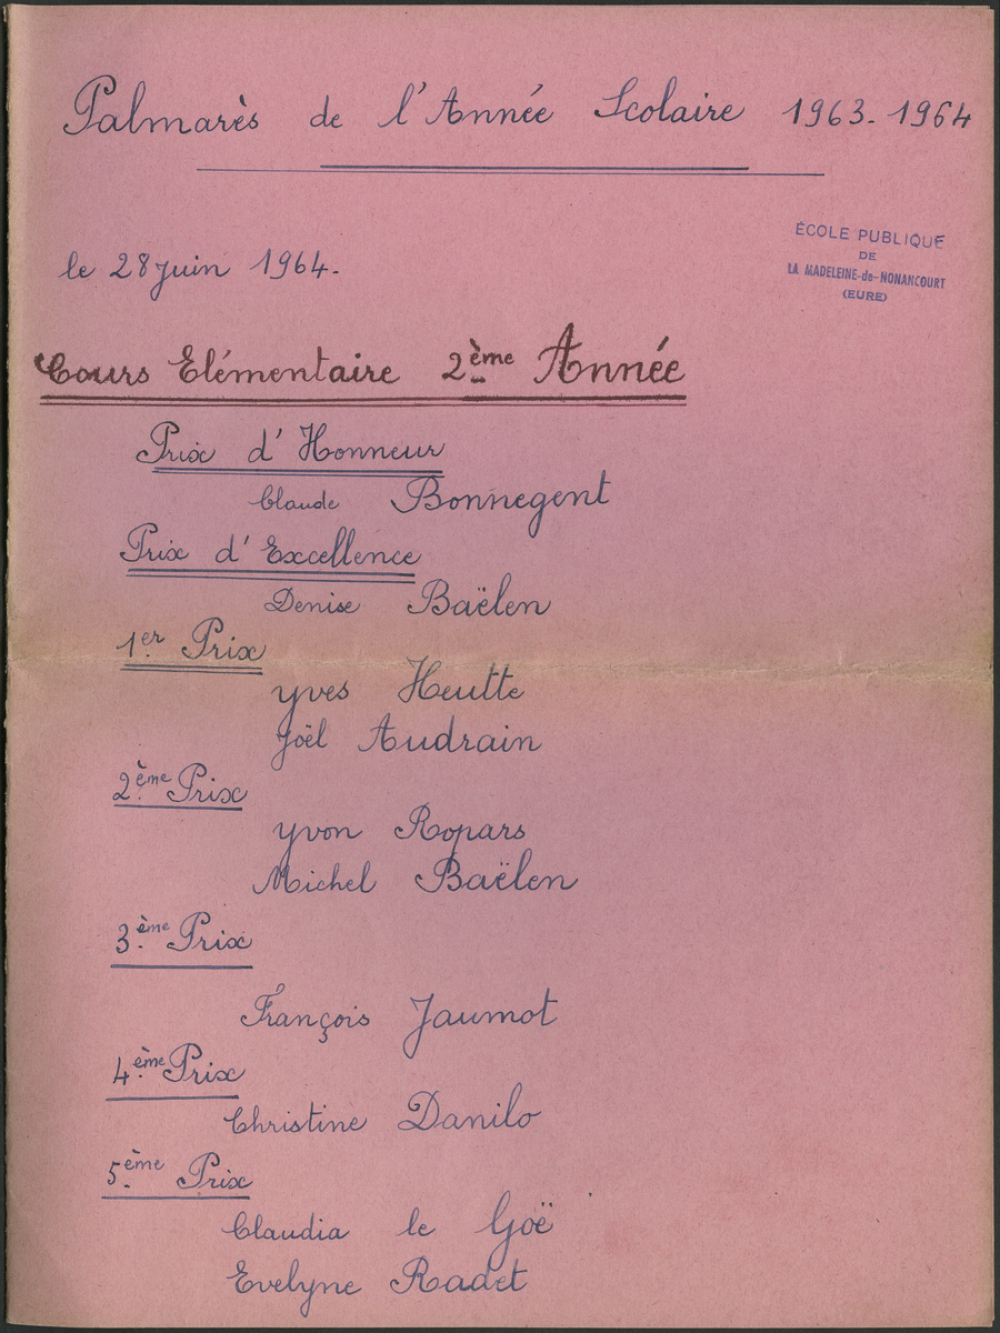 Palmarès de l'Année Scolaire 1963-1964
ÉCOLE PUBLIQUE
DE
LA MADELEINE-de-NONANCOURT
(EURE)
le 28 juin 1964.
Cours Elémentaire 2ème Année
Prix d'Honneur
Claude Bonnegent
Prix d'Excellence
Denise Baëlen
1er Prix
Yves Heutte
Joël Audrain
2ème Prix
Yvon Ropars
Michel Baëlen
3ème Prix
François Jaumot
4ème Prix
Christine Danilo
5ème Prix
Claudia le Goë
Evelyne Radet